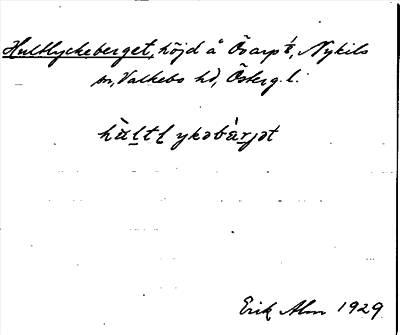 Hultlyckeberget, höjd å Ösarp 1/8, Nykils
sn, Valkebo hd, Österg. l.
hùltlykəbárjət
Erik Alm 1929